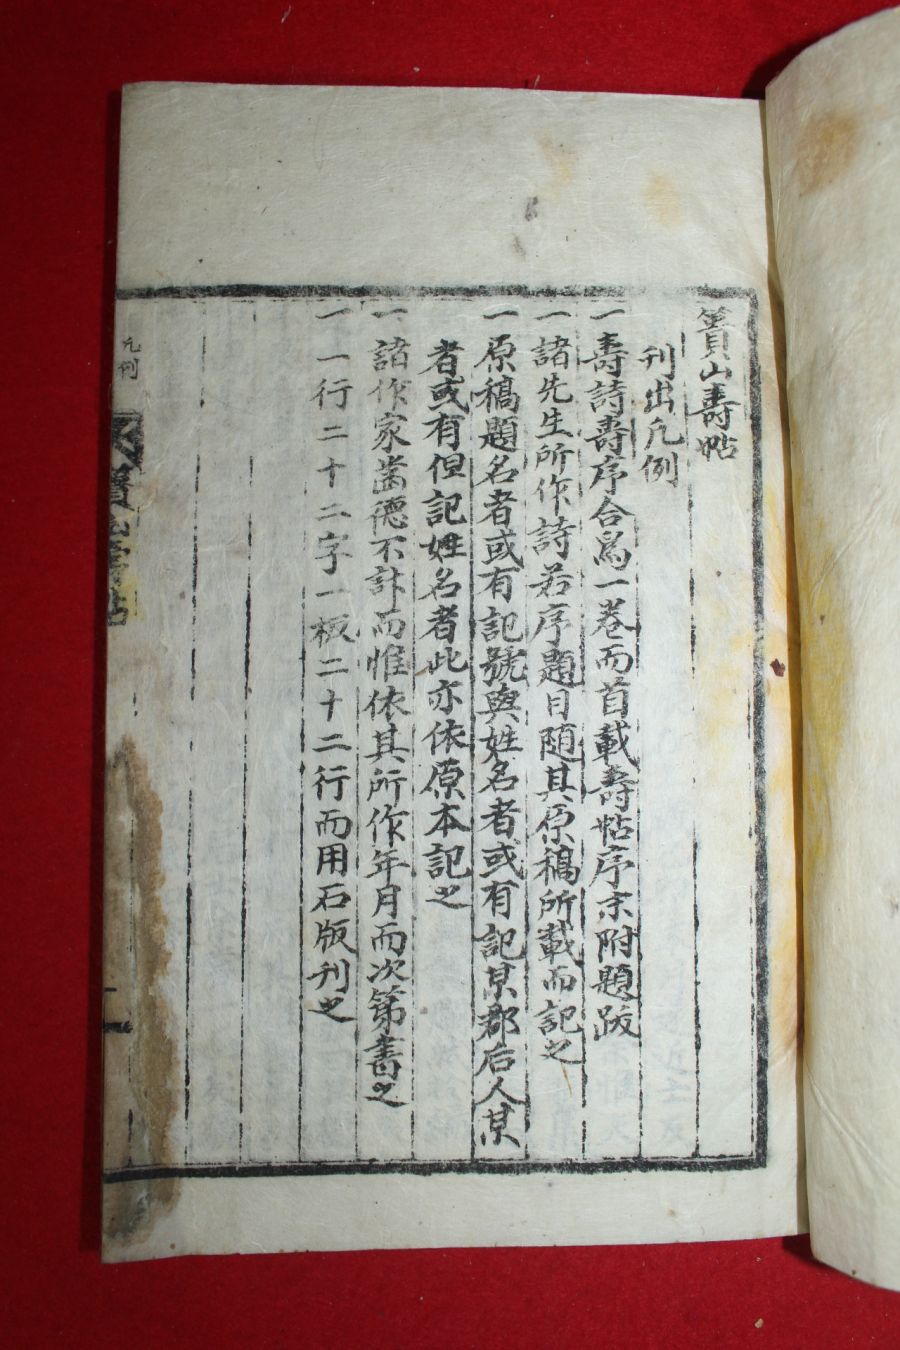 篔山壽帖
刊出凡例
一壽詩壽序合爲一卷而首載壽帖序末附題跋
一諸先生所作詩若序題目随其原稿所載而記之
一原稿題名者或有記號與姓名者或有記某郡后人某
者或有但記姓名者此亦依原本記之
一諸作家齒德不計而惟依其所作年月而次第書之
一一行二十二字一板二十二行而用石版刊之
凡例
一